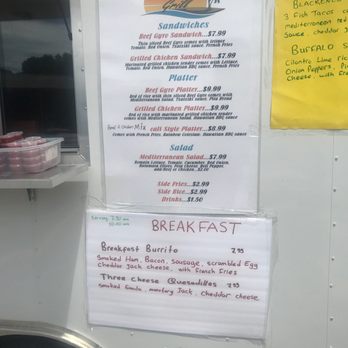 Grill
Sandwiches
Beef Gyro Sandwich...$7.99
Thin sliced Beef Gyro with lettuce
Tomato, Red Onion, Tzatziki sauce, French Fries
Grilled Chicken Sandwich...$7.99
Marinated grilled chicken tender with Lettuce, Tomato,
Red Onion, Hawaiian BBQ sauce, French Fries
Platter
Beef Gyro Platter...$9.99
Bed of rice with thin sliced Beef Gyro comes with
Mediterranean Salad, Tzatziki sauce, Pita Bread
Grilled Chicken Platter...$9.99
Bed of rice with marinated grilled chicken tender
comes with Mediterranean Salad, Hawaiian BBQ sauce
Beef & Chicken Mix
Cali Style Platter...$8.99
French Fries, Rainbow Coleslaw, Hawaiian BBQ sauce
Salad
Mediterranean Salad...$7.99
Romain Lettuce, Tomato, Cucumber, Red Onion,
Kalamata Olives, Feta Cheese, Bell Pepper
add Beef or Chicken...$2.00
Side Fries...$2.99
Side Rice...$2.99
Drinks...$1.50
BREAKFAST
Breakfast Burrito 7.99
Smoked Ham, Bacon, Sausage, scrambled Egg
cheddar jack cheese, with french fries
Three Cheese Quesadillas 7.99
smoked Gouda, monterey Jack, cheddar cheese
3 Fish Tacos
mediterranean red
Sauce, cheddar
BUFFALO
Cilantro Lime ric
Onion Peppers, Pi
Cheese, with f